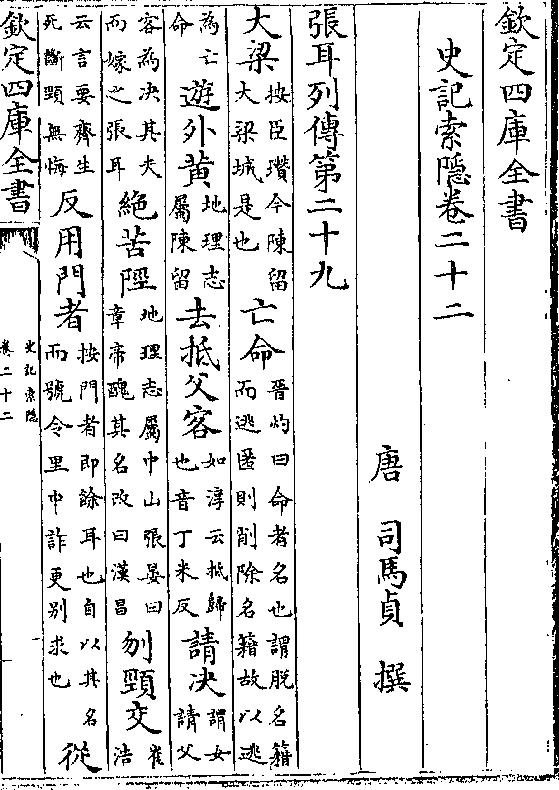 欽定四庫全書
史記索隠卷二十二
唐 司馬貞 撰
張耳列傳第二十九
大梁按臣瓚今陳留大梁城是也亡命晉灼曰命者名也謂脱名籍而逃匿則削除名籍故以逃
為亡命遊外黃地理志屬陳留去抵父客如淳云抵歸也音丁米反請决謂女請父
客為决其夫而嫁之張耳絶苦陘地理志屬中山張晏曰章帝醜其名改曰漢昌刎頸交崔浩
云言要齊生死斷頸無悔反用門者按門者即餘耳也自以其名而號令里中詐更别求也從
欽定四庫全書
史記索隠
卷二十二